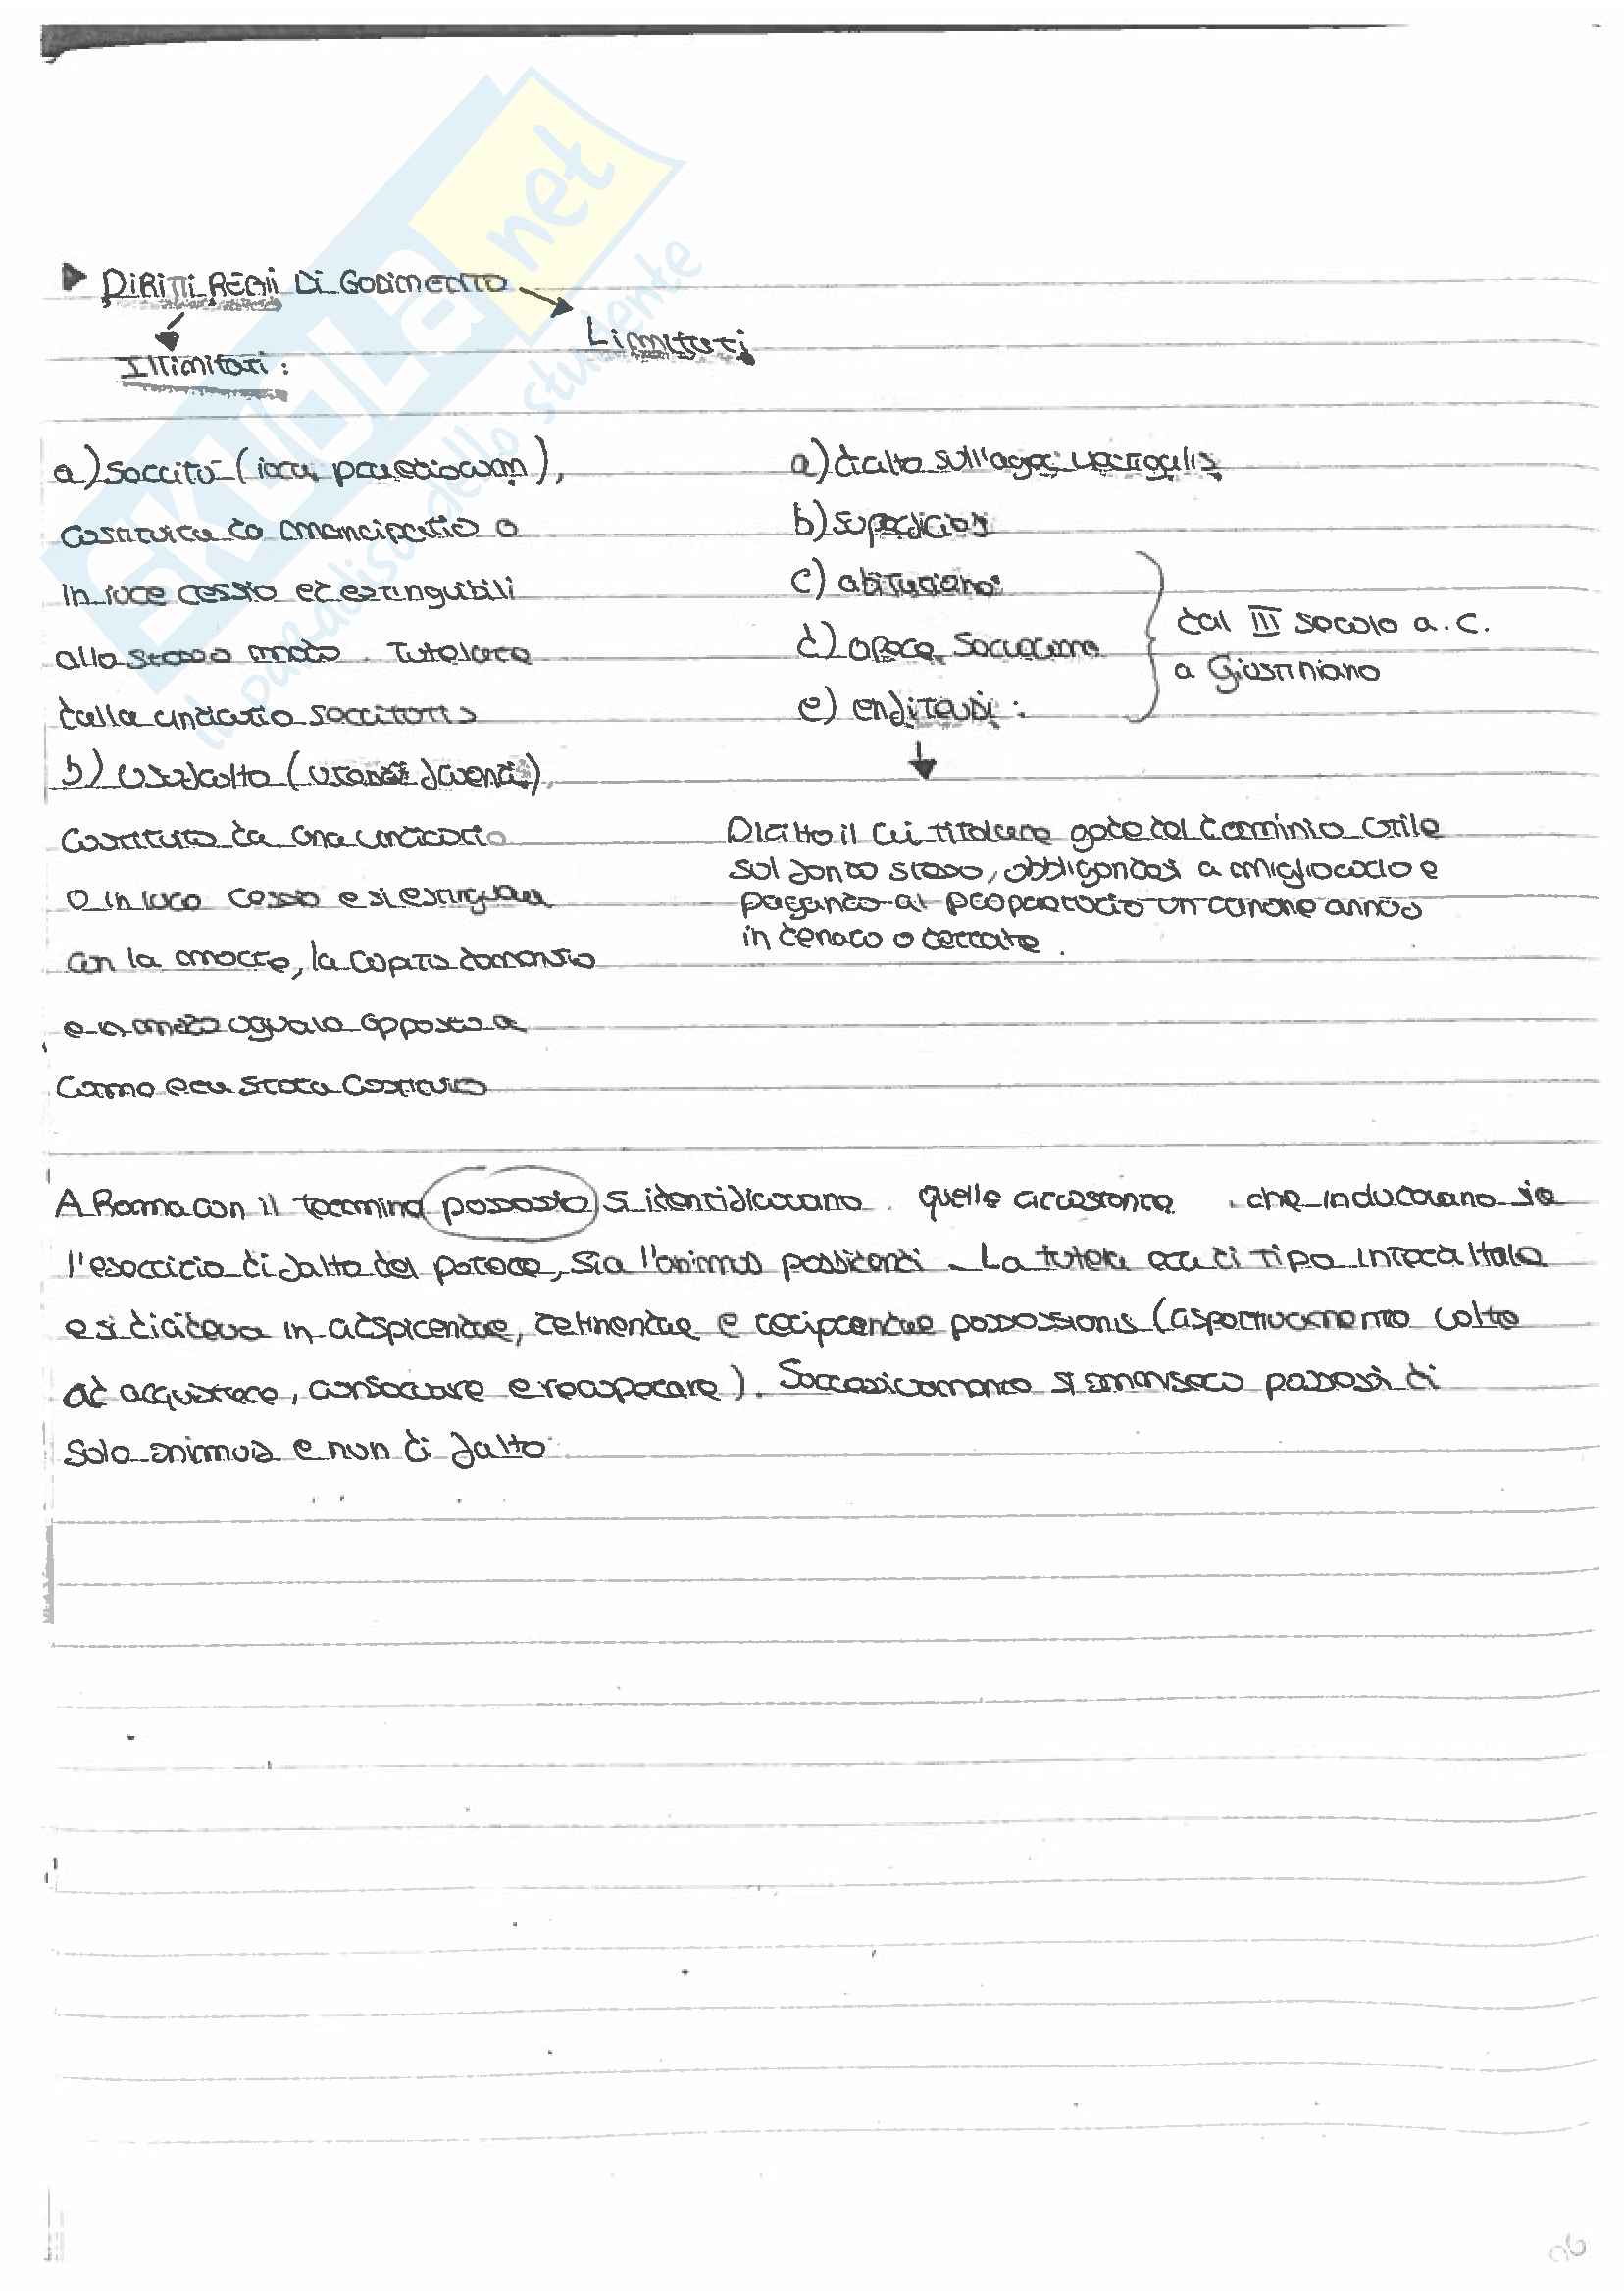 SKUOLA.net
il paradiso dello studente
▶ DIRITTI REALI DI GODIMENTO
Limitati
Illimitati:
a) Servitù (iura praediorum),
costituita da mancipatio o
in iure cessio ed estinguibili
allo stesso modo. Tutelate
dalla vindicatio servitutis
b) Usufrutto (utendi fruendi),
Costituito da una vindicatio
o in iure cessio e si estingueva
con la morte, la capitis deminutio
e in modo uguale opposto a
come era stato costituito
a) diritto sull'ager vectigalis
b) superficies
c) abitazione
d) operae servorum
e) enfiteusi:
dal III secolo a.C.
a Giustiniano
Diritto il cui titolare gode del dominio utile
sul fondo stesso, obbligandosi a migliorarlo e
pagando al proprietario un canone annuo
in denaro o derrate.
A Roma con il termine possessio si identificavano quelle circostanze che inducevano sia
l'esercizio di fatto del potere, sia l'animus possidendi. La tutela era di tipo interdittale
e si divideva in adipiscendae, retinendae e recuperandae possessionis (
ad acquistare, conservare e recuperare). Successivamente si possessi di
solo animus e non di fatto